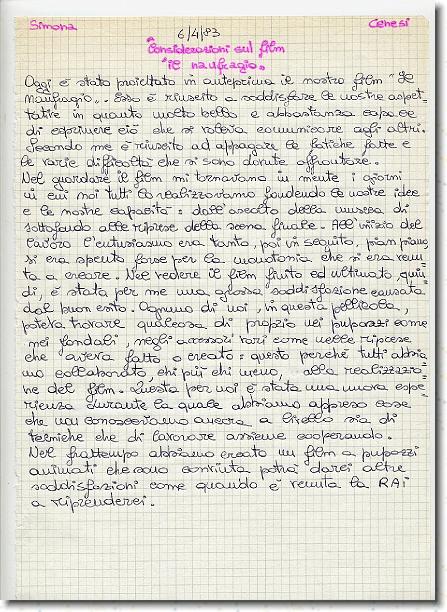 Simona 6/4/83 Cenesi
"Considerazioni sul film
"il naufragio".
Oggi è stato proiettato in anteprima il nostro film "Il
Naufragio". Esso è riuscito a soddisfare le nostre aspet-
tative in quanto molto bello e abbastanza capace
di esprimere ciò che si voleva comunicare agli altri.
Secondo me è riuscito ad appagare le fatiche fatte e
le varie difficoltà che si sono dovute affrontare.
Nel guardare il film mi tornavano in mente i giorni
in cui noi tutti lo realizzavamo fondendo le nostre idee
e le nostre capacità: dall'ascolto della musica di
sottofondo alle riprese della scena finale. All'inizio del
lavoro l'entusiasmo era tanto, poi in seguito, pian piano
si era spento forse per la monotonia che si era venu-
ta a creare. Nel vedere il film finito ed ultimato, quin
di, è stata per me una grossa soddisfazione causata
dal buon esito. Ognuno di noi, in questa pellicola,
poteva trovare qualcosa di proprio nei pupazzi come
nei fondali, negli accessori vari come nelle riprese
che aveva fatto o creato: questo perché tutti abbia
mo collaborato, chi più chi meno, alla realizzazio
ne del film. Questa per noi è stata una nuova espe
rienza durante la quale abbiamo appreso cose
che non conoscevamo ancora a livello sia di
tecniche che di lavorare assieme cooperando.
Nel frattempo abbiamo creato un film a pupazzi
animati che sono convinta potrà darci altre
soddisfazioni come quando è venuta la RAI
a riprenderci.